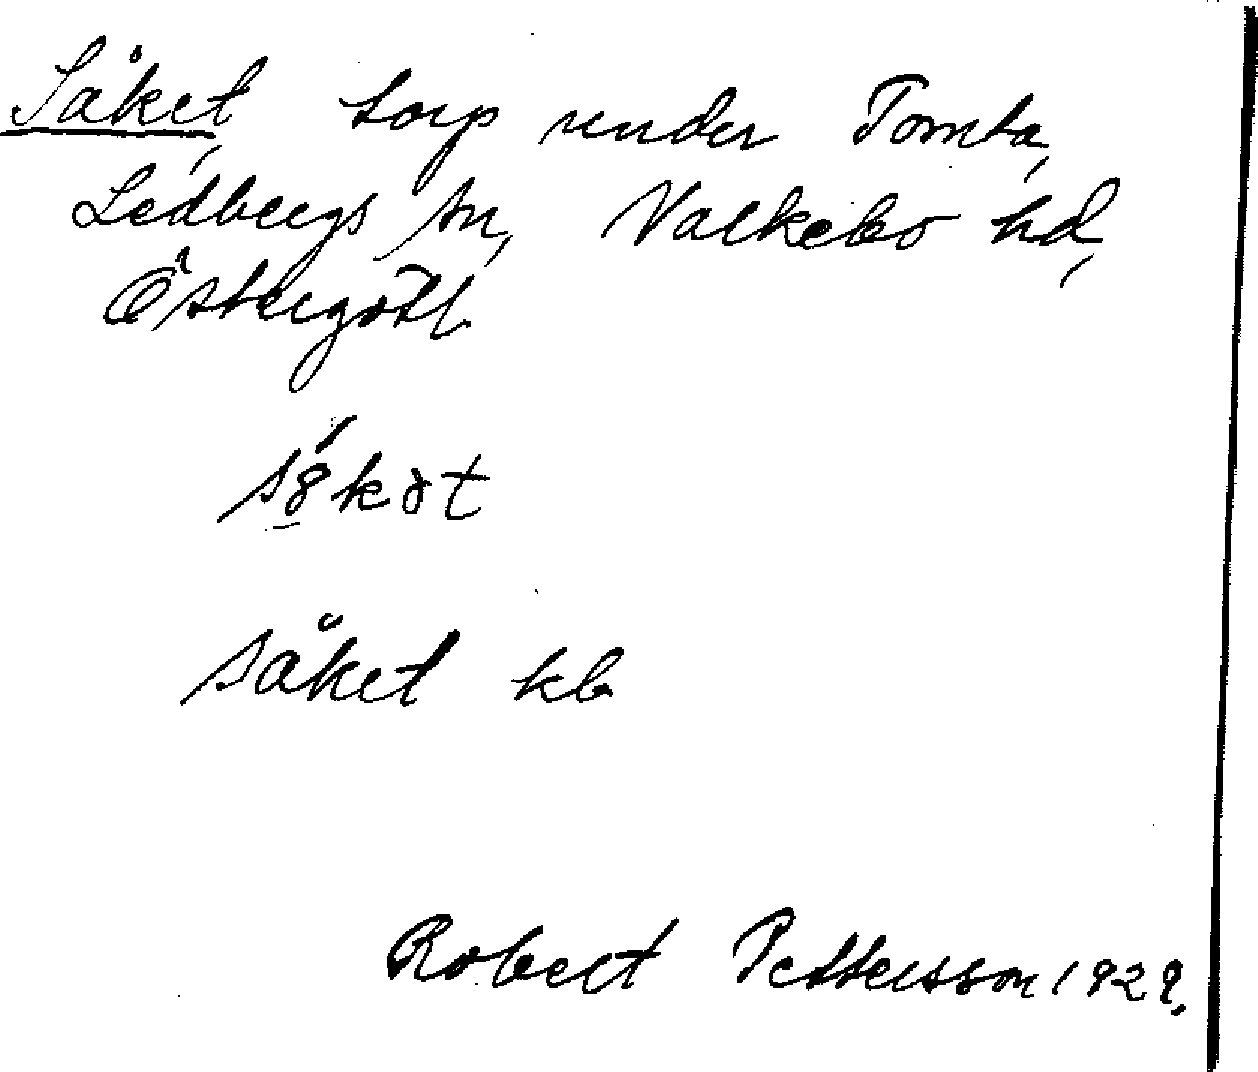 Såket, torp under Tomta,
Ledbergs sn, Valkebo hd,
Östergötl.
såket kb
Robert Pettersson 1929.